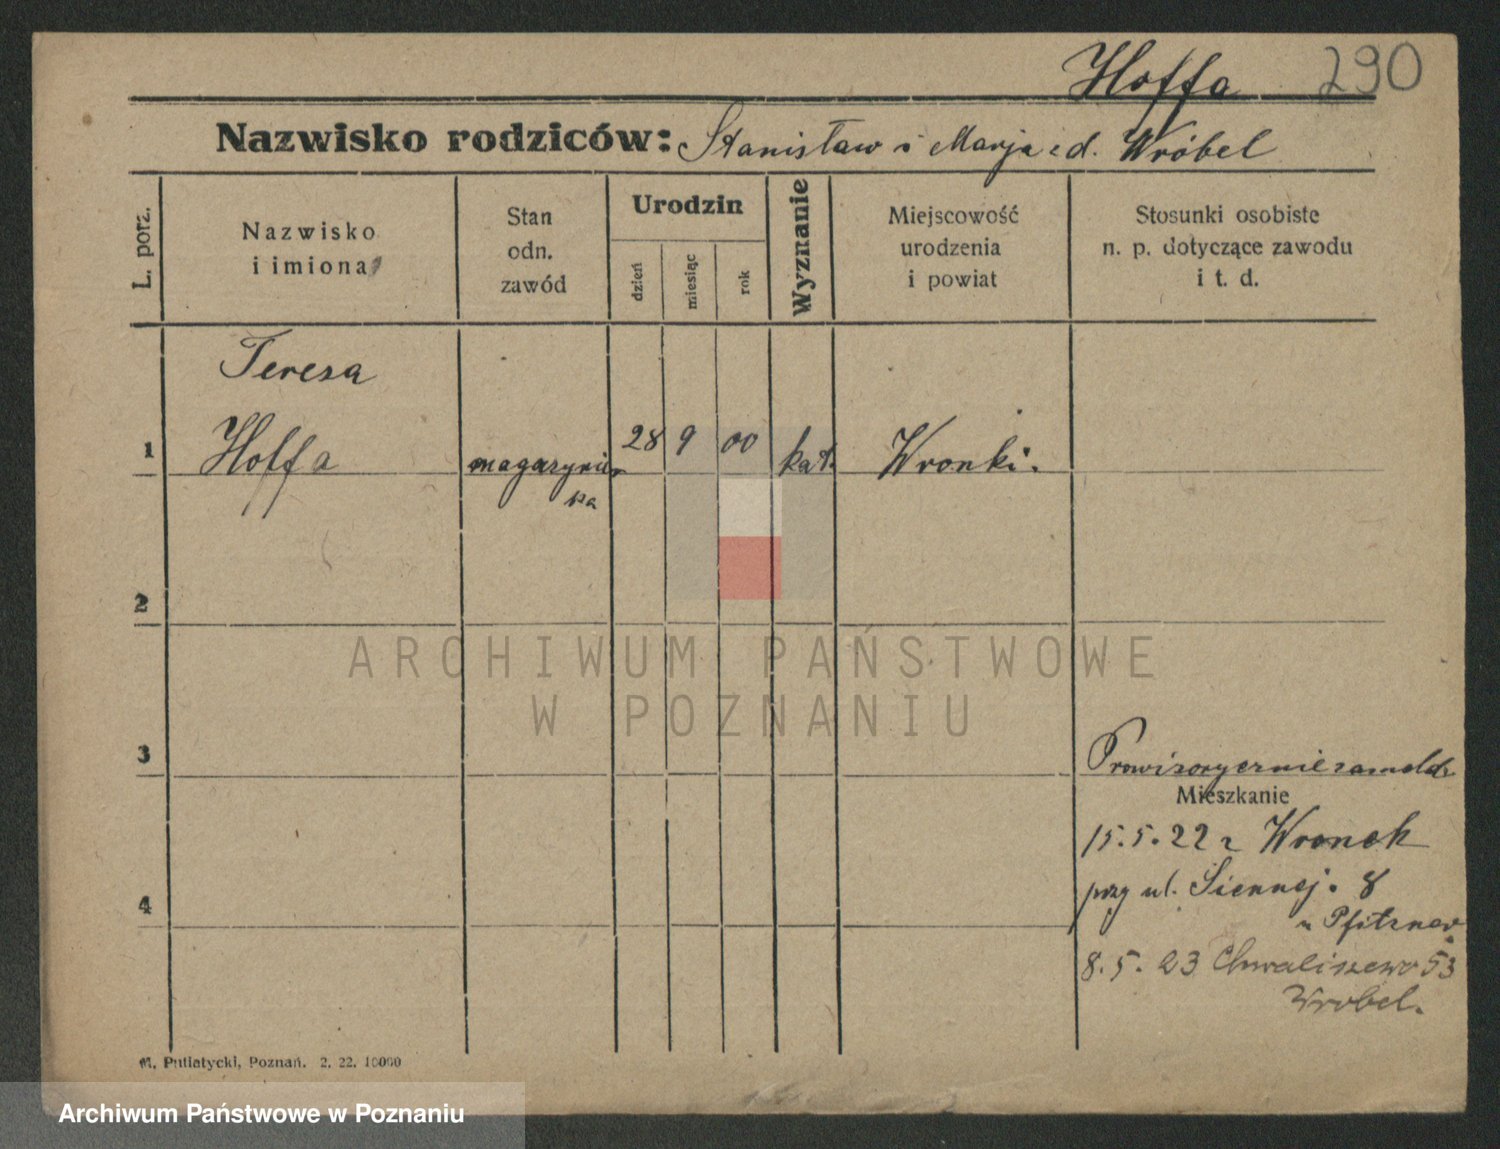 Hoffa 290
Nazwisko rodziców: Stanisław i Marja z d. Wróbel
L. porz.
Nazwisko
i imiona
Stan
odn.
zawód
Urodzin
dzień
miesiąc
rok
Wyznanie
Miejscowość
urodzenia
i powiat
Stosunki osobiste
n. p. dotyczące zawodu
i t. d.
Teresa
1 Hoffa magazynier 28 9 00 kat. Wronki.
ka
2
ARCHIWUM PAŃSTWOWE
W POZNANIU
3
Prowizorycznie zameld.
Mieszkanie
15.5.22 z Wronek
4
przy ul. Siennej. 8
u Pfitzner
8.5.23 Chwaliszewo 53
Wrobel.
M. Putiatycki, Poznań. 2. 22. 10000
Archiwum Państwowe w Poznaniu